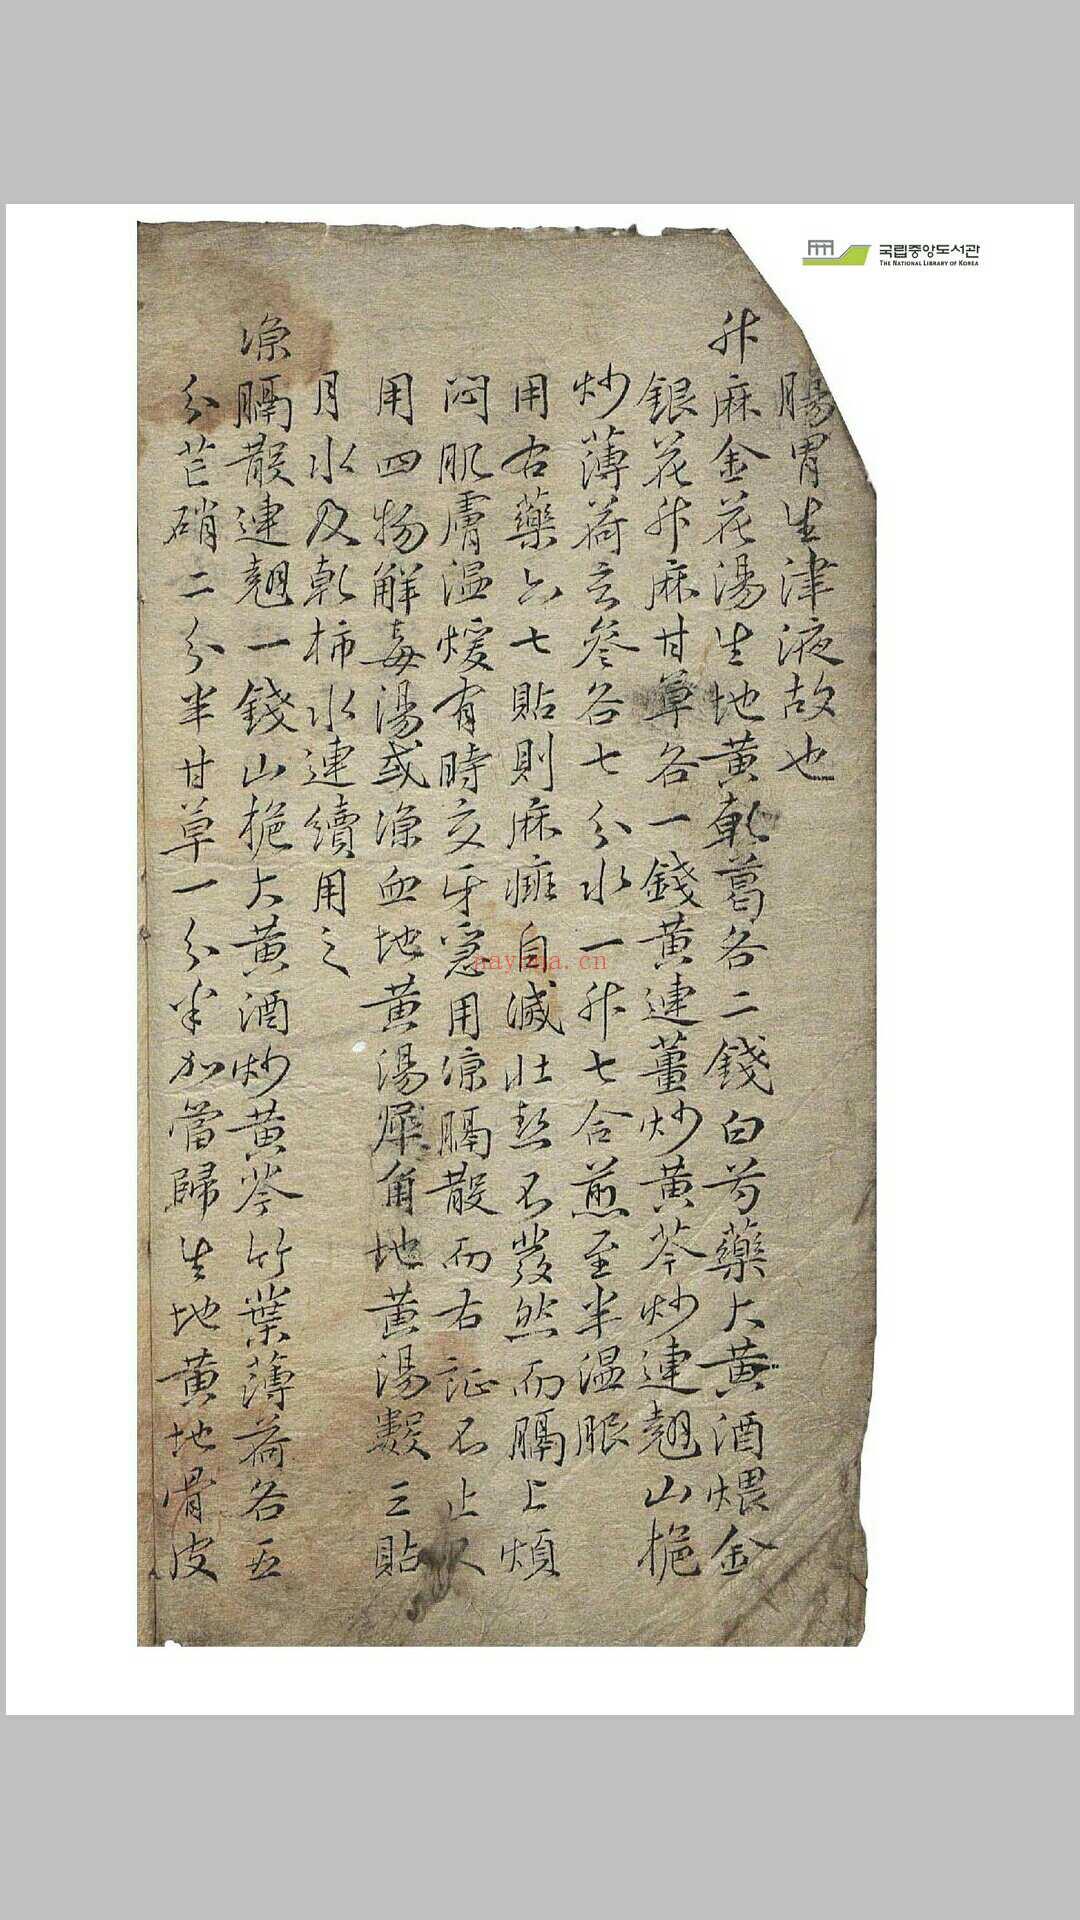 국립중앙도서관
THE NATIONAL LIBRARY OF KOREA
腸胃生津液故也
升麻金花湯生地黃乾葛各二錢白芍藥大黃酒煨金
銀花升麻甘草各一錢黃連薑炒黃芩炒連翹山梔
炒薄荷玄參各七分水一升七合煎至半温服
用右藥六七貼則麻痛自減壯熱不發然而膈上煩
悶肌膚温煖有時交牙急用凉膈散而右証不止又
用四物解毒湯或凉血地黃湯犀角地黃湯數三貼
月水及乾柿水連續用之
凉膈散連翹一錢山梔大黃酒炒黃芩竹葉薄荷各五
分芒硝二分半甘草一分半加當歸生地黃地骨皮
nayona.cn